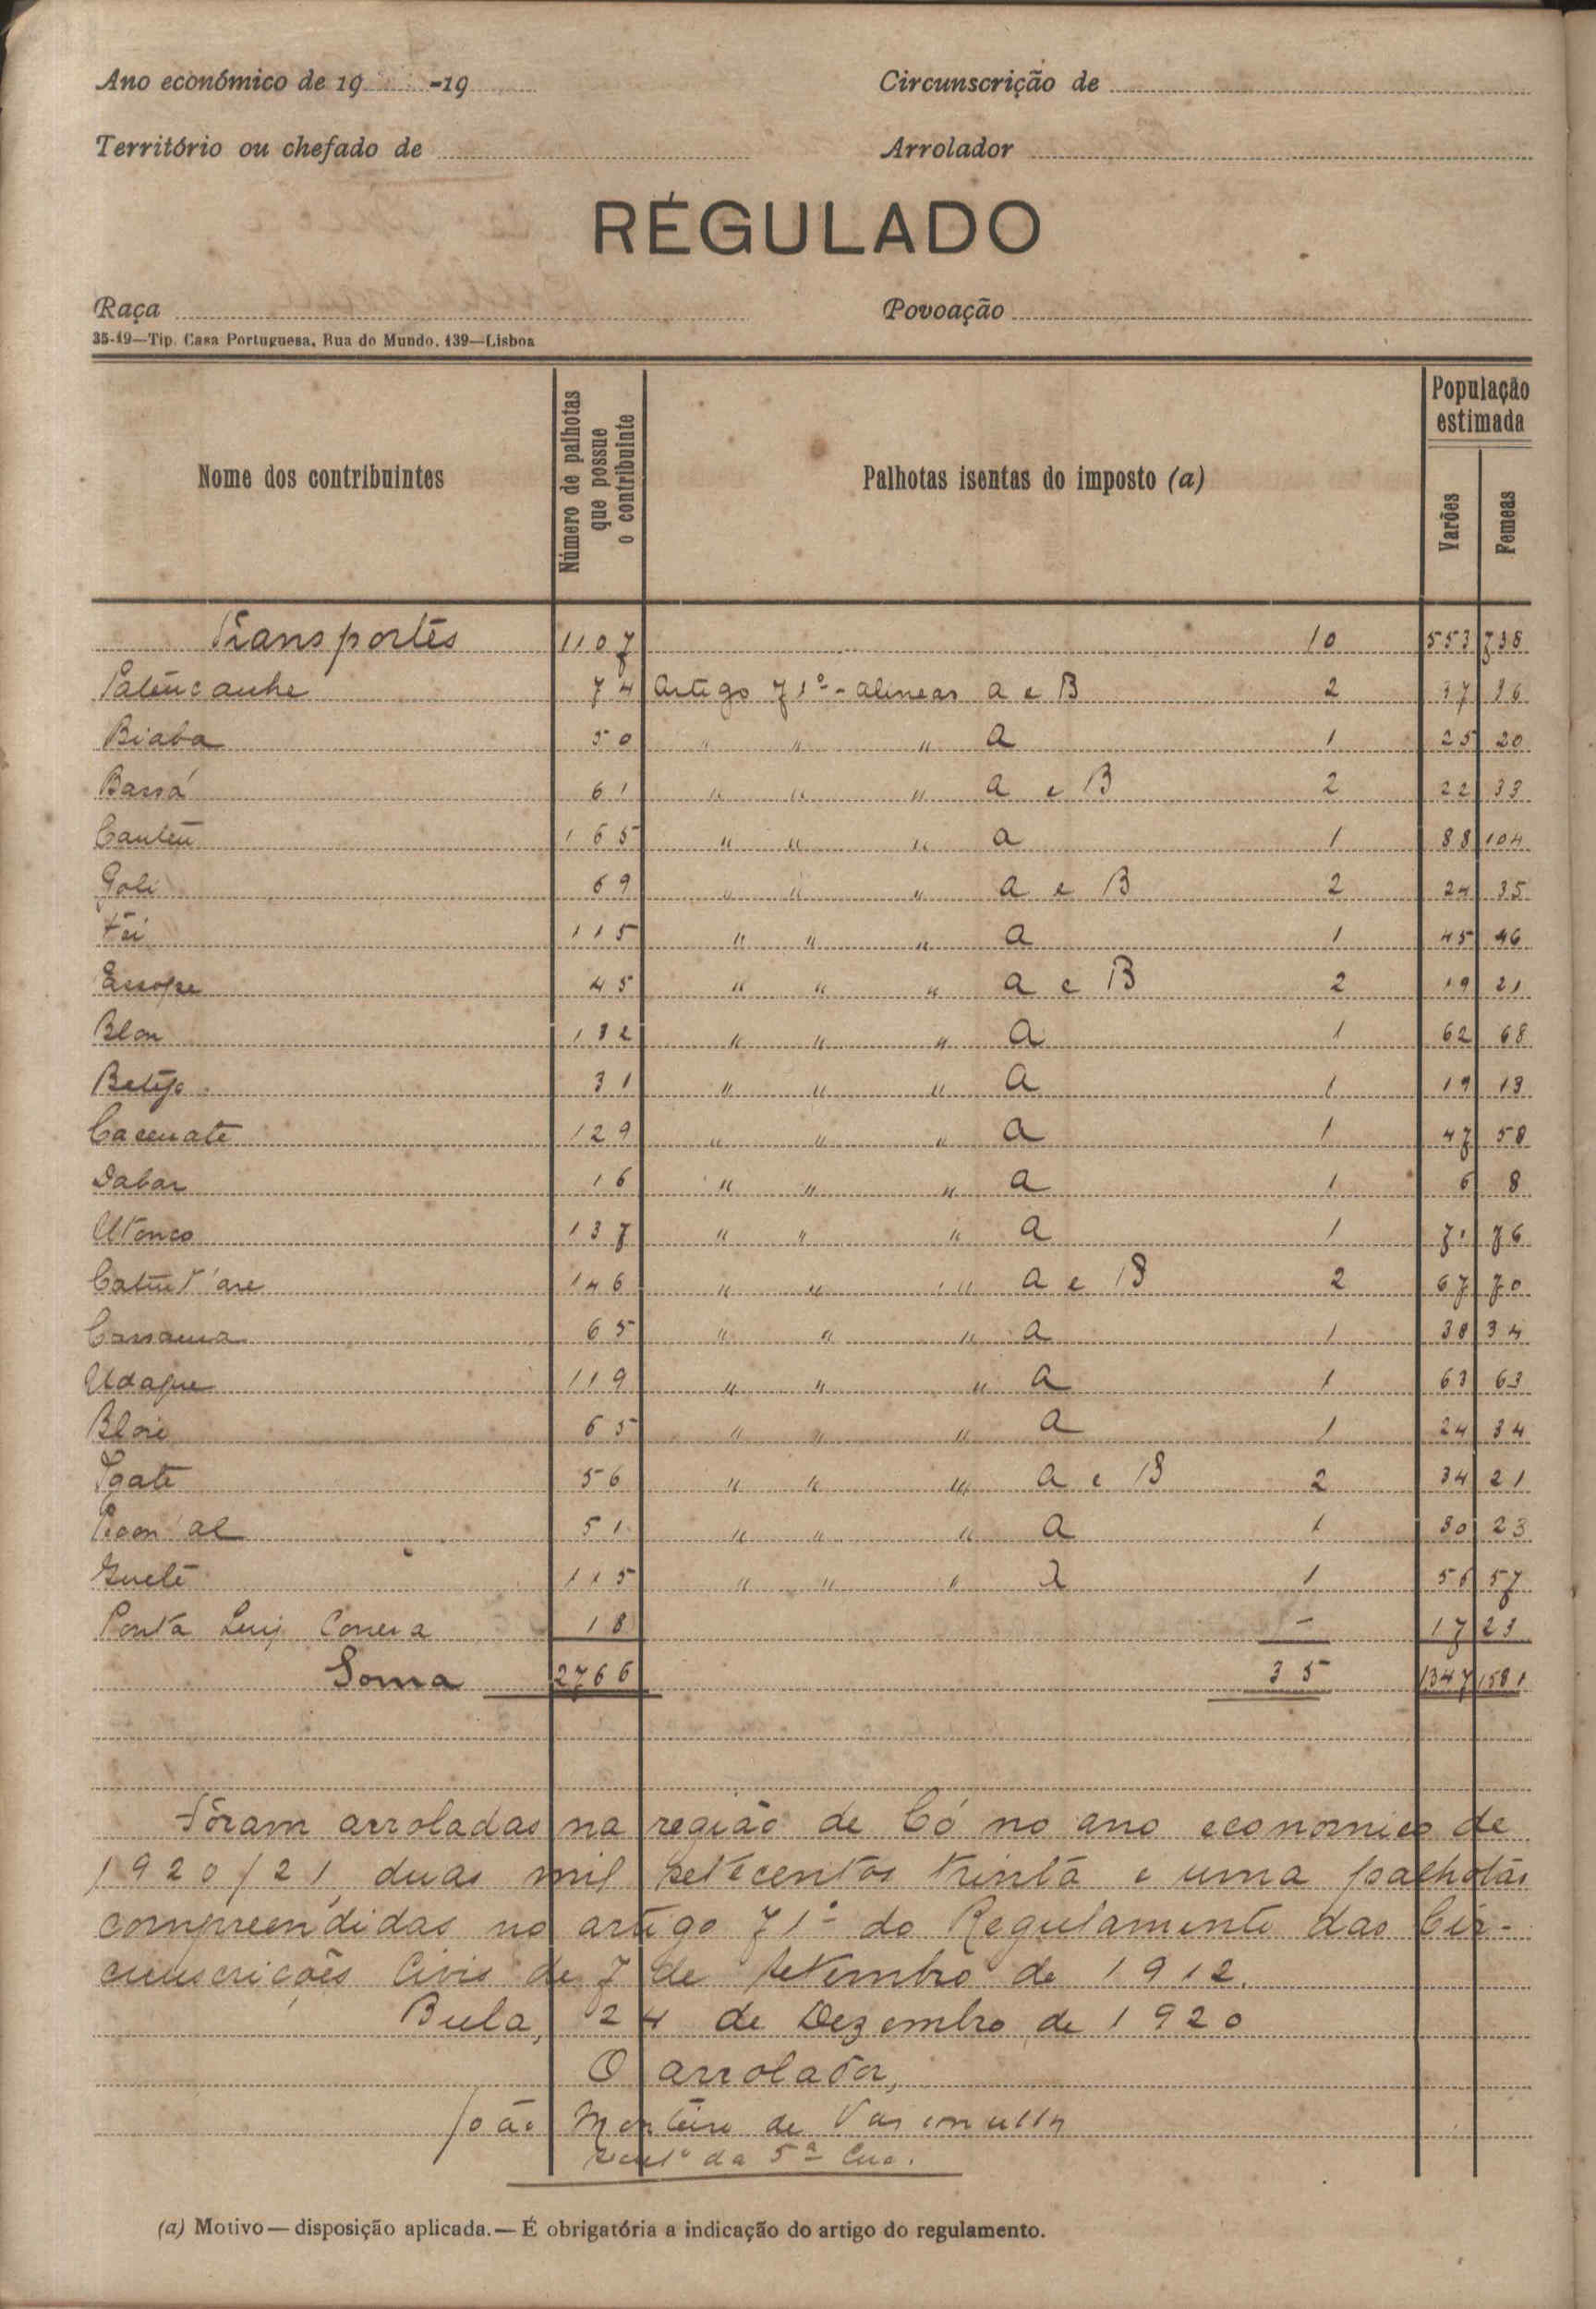 Ano económico de 19 -19 Circunscrição de
Território ou chefado de Arrolador
RÉGULADO
Raça Povoação
35-19—Tip. Casa Portuguesa, Rua do Mundo, 139—Lisboa
Nome dos contribuintes Número de palhotas que possue o contribuinte Palhotas isentas do imposto (a) População estimada Varões Femeas
Transportes 1107 10 553 738
74 Artigo 71º - alineas a e B 2 37 36
Biaba 50 " " " a 1 25 20
Barrá 61 " " " a e B 2 22 33
165 " " " a 1 88 104
Goli 69 " " " a e B 2 24 35
115 " " " a 1 45 46
45 " " " a e B 2 19 21
Blon 132 " " " a 1 62 68
31 " " " a 1 19 13
129 " " " a 1 47 58
Dabar 16 " " " a 1 6 8
137 " " " a 1 71 76
146 " " " a e B 2 67 70
65 " " " a 1 38 34
119 " " " a 1 63 63
65 " " " a 1 24 34
56 " " " a e B 2 34 21
51 " " " a 1 30 23
115 " " " a 1 56 57
Ponta Luiz Correia 18 - 17 23
Soma 2766 35 1347 1581
Fôram arroladas na região de Có no ano economico de
1920/21, duas mil setecentos trinta e uma palhotas
compreendidas no artigo 71º do Regulamento das Cir-
cunscrições Civis de 7 de Setembro de 1912.
Bula, 24 de Dezembro de 1920
O arrolador,
João Monteiro de
da 5ª
(a) Motivo—disposição aplicada.—É obrigatória a indicação do artigo do regulamento.